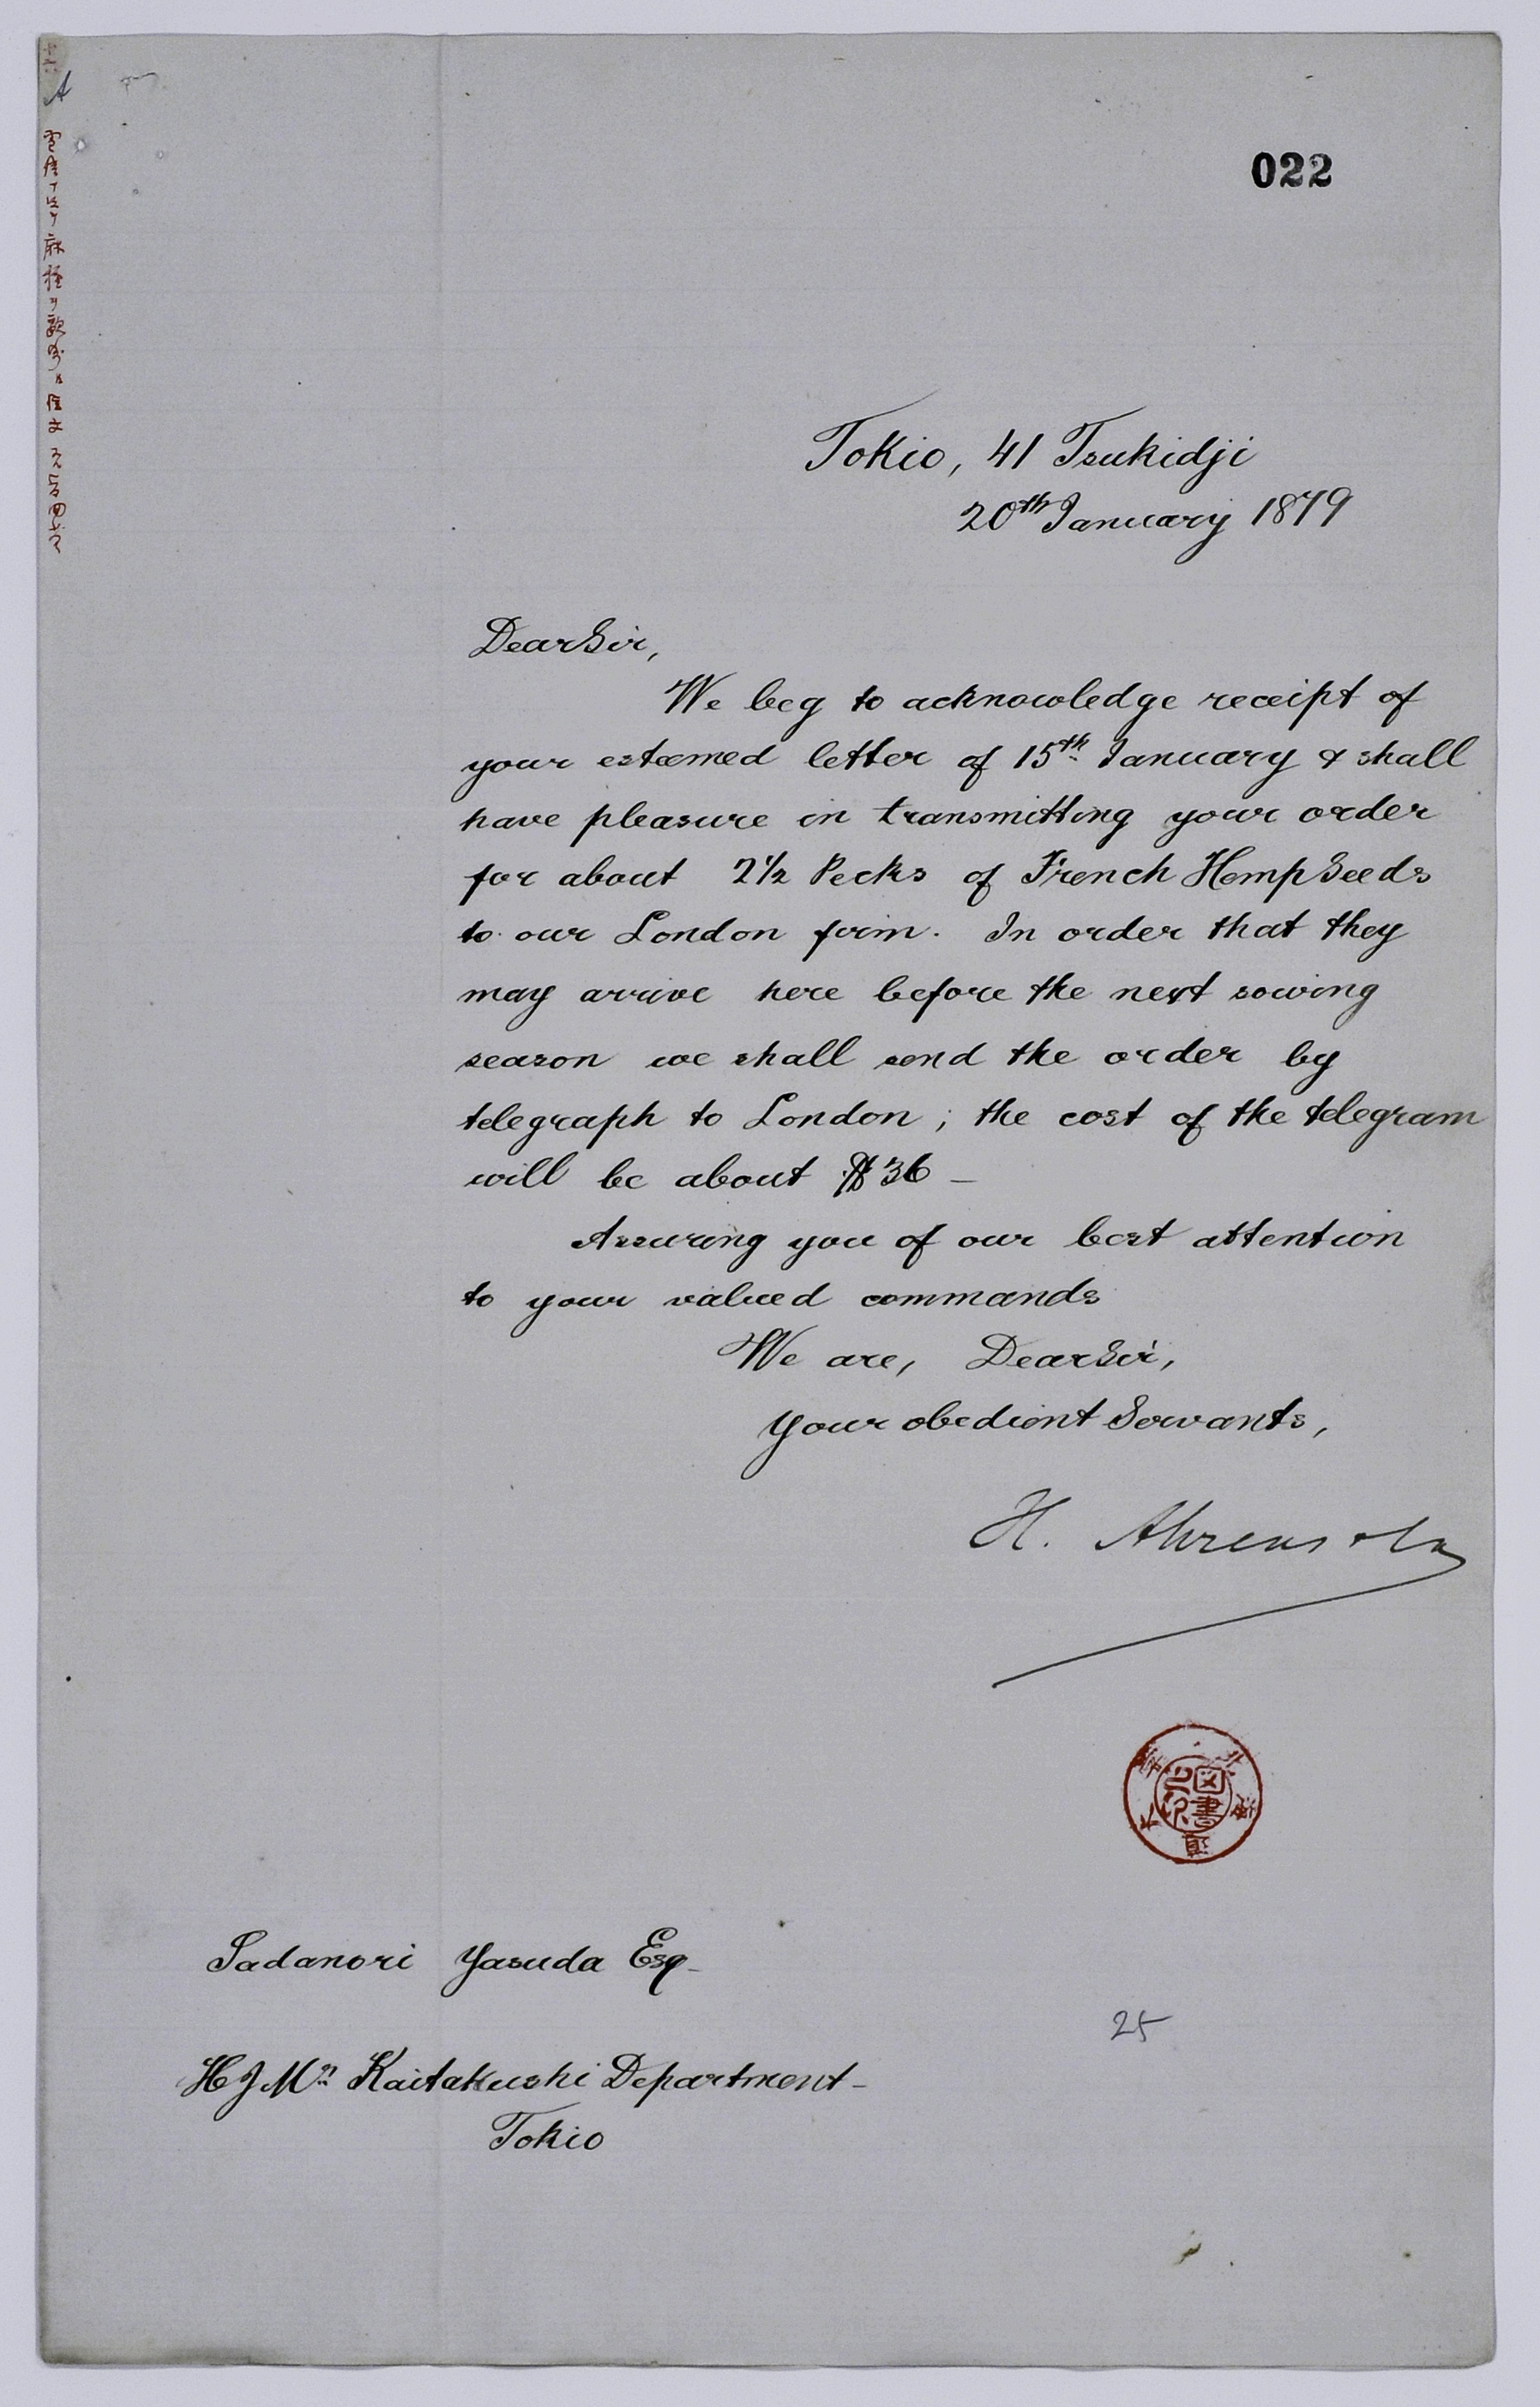 A
022
Tokio, 41 Tsukidji
20th January 1879
Dear Sir,
We beg to acknowledge receipt of
your esteemed letter of 15th January & shall
have pleasure in transmitting your order
for about 2½ Pecks of French Hemp Seeds
to our London firm. In order that they
may arrive here before the next sowing
season we shall send the order by
telegraph to London; the cost of the telegram
will be about $36 –
Assuring you of our best attention
to your valued commands
We are, Dear Sir,
Your obedient Servants,
H. Ahrens & Co
図書
Sadanori Yasuda Esq.
25
H J M's Kaitakushi Department –
Tokio